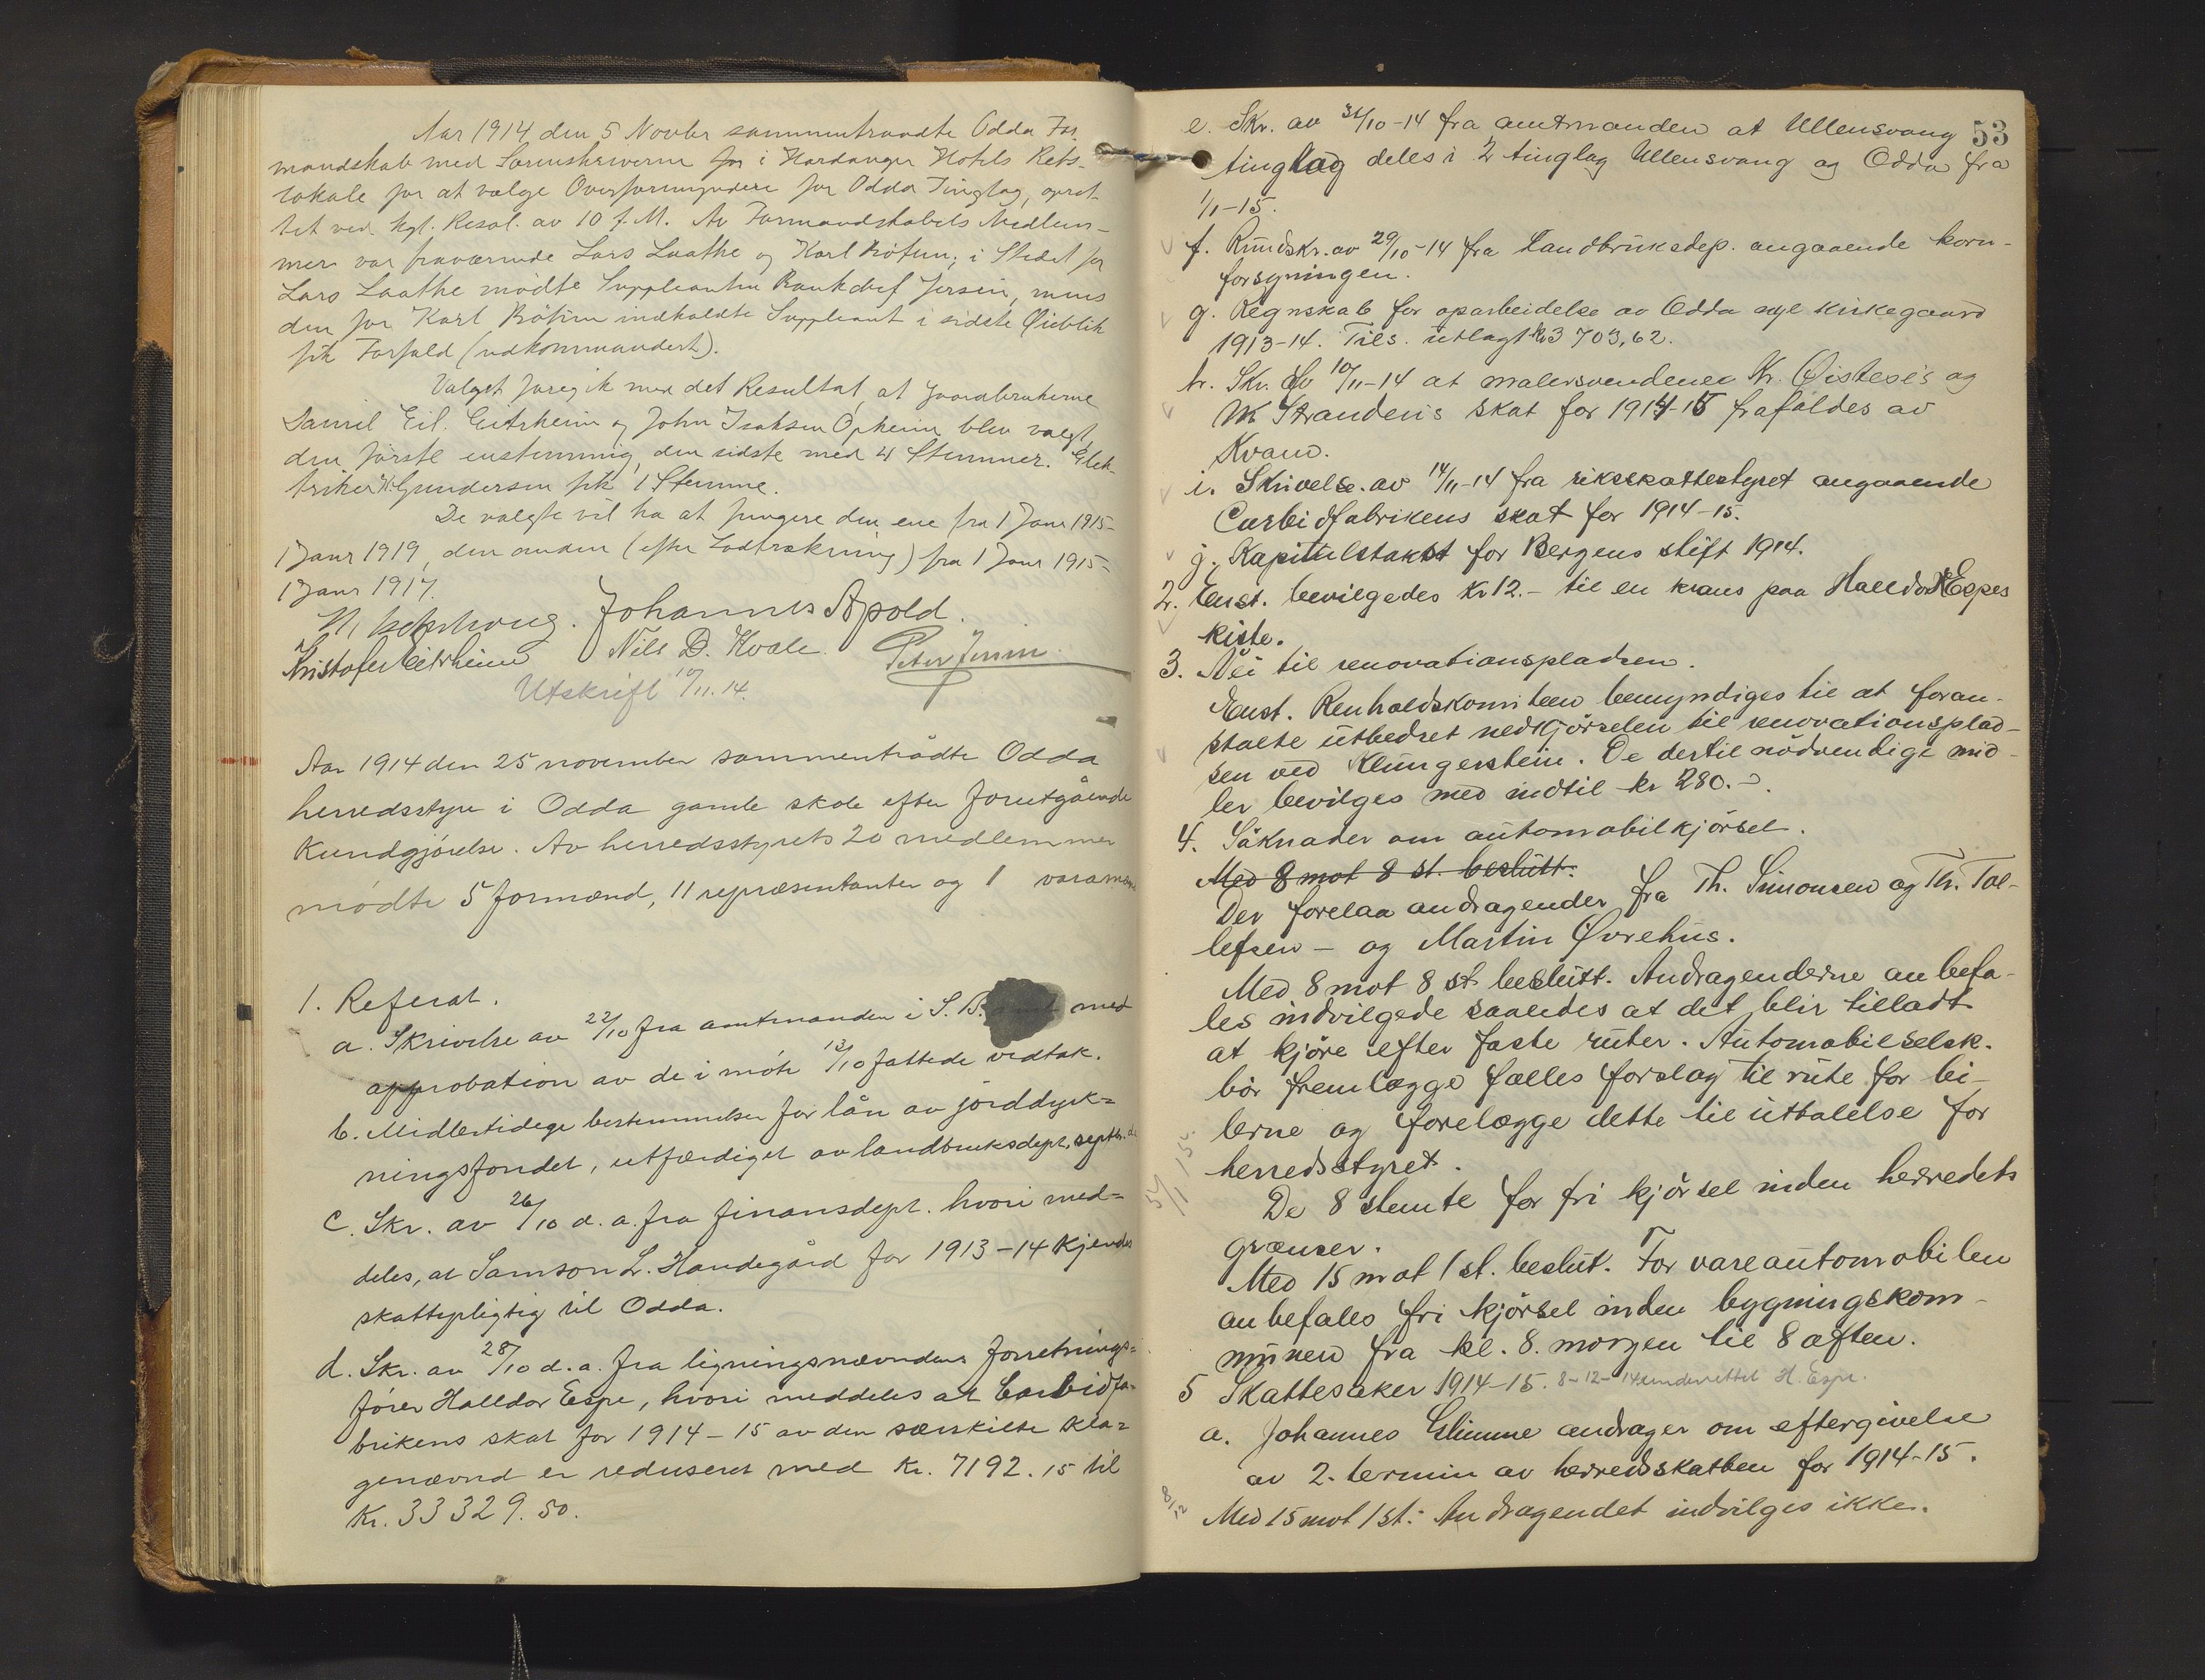 Aar 1914 den 5 Novbr sammentraadte Odda For
mandskab med Sorenskriveren for i Hardanger Hotels Rets-
lokale for at vælge Overformyndere for Odda Tinglag, opret-
tet ved kgl. Resol. av 10 f. M. Av Formandskabets Medlem-
mer var fraværende Lars Laathe og Karl ; i Stedet for
Lars Laathe mödte Suppleanten Bankchef Jersin, mens
den for Karl indkaldte Suppleant i sidste Øieblik
fik Forfald (udkommandert).
Valget foregik med det Resultat, at gaardbrukerne
Samil Eil. Eitrheim og John Isaksen Opheim blev valgt,
den förste enstemmig, den sidste med 4 Stemmer. Elek-
triker Gundersen fik 1 Stemme.
De valgte vil ha at fungere den ene fra 1 Janr 1915-
1 Janr 1919, den anden (efter Lodtrækning) fra 1 Janr 1915-
1 Janr 1917.
Johannes Apold.
Kristofer Eitrheim Nils D. Kvale. Peter Jersin
Utskrift 10/11.14.
Aar 1914 den 25 november sammentrådte Odda
herredsstyre i Odda gamle skole efter forutgående
kundgjörelse. Av herredsstyrets 20 medlemmer
mödte 5 formænd, 11 repræsentanter og 1 varamand
1. Referat.
a. Skrivelse av 22/10 fra amtmanden i S. B. med
approbation av de i möte 13/10 fattede vedtak.
b. Midlertidige bestemmelser for lån av jorddyrk=
ningsfondet, utfærdiget av landbruksdept. septbr. d.
c. Skr. av 26/10 d. a. fra finansdept. hvori med=
deles, at Samson L. Handegård for 1913-14 kjendes
skattepligtig til Odda.
d. Skr. av 28/10 d. a. fra ligningsnævndens forretnings=
förer Halldor Espe, hvori meddeles at Carbidfa=
brikens skat for 1914-15 av den særskilte kla=
genævnd er reduseret med kr. 7192.15 til
kr. 33329.50.
53
e. Skr. av 31/10-14 fra amtmanden at Ullensvang
tinglag deles i 2 tinglag Ullensvang og Odda fra
1/1-15.
f. Rundskr. av 29/10-14 fra Landbruksdep. angaaende korn-
forsyningen.
g. Regnskab for oparbeidelse av Odda nye kirkegaard
1913-14. Tils. utlagt kr 3703,62.
h. Skr. av 10/11-14 at malersvendene Kr. Øistesö's og
M Strandens skat for 1914-15 frafaldes av
Kvam.
i. Skrivelse. av 14/11-14 fra riksskattestyret angaaende
Carbidfabrikens skat for 1914-15.
j. Kapitulstakst for Bergens stift 1914.
2. Enst. bevilgedes kr 12.- til en krans paa Halldor Espes
kiste.
3. Vei til renovationspladsen.
Enst. Renholdskomiteen bemyndiges til at foran-
stalte utbedret nedkjörselen til renovationsplad-
sen ved Klungerstein. De dertil nödvendige mid-
ler bevilges med indtil kr 280.-.
4. Söknader om automobilkjörsel.
Med 8 mot 8 st. beslutt.
Der forelaa andragender fra Th. Simonsen og Th. Tol-
lefsen - og Martin Øvrehus.
Med 8 mot 8 st. beslutt. Andragenderne anbefa-
les indvilgede saaledes at det blir tilladt
at kjöre efter faste ruter. Automobilselsk.
bör fremlægge fælles forslag til rute for bi-
lerne og forelægge dette til uttalelse for
herredsstyret.
De 8 stemte for fri kjörsel inden herredets
grænser.
Med 15 mot 1 st. beslut. For vareautomobilen
anbefales fri kjörsel inden bygningskom-
munen fra kl. 8. morgen til 8 aften.
5 Skattesaker 1914-15. 8-12-14 underrettet H. Espe.
a. Johannes Glimme andrager om eftergivelse
av 2. termin av herredsskatten for 1914-15.
8/12 Med 15 mot 1 st.: Andragendet indvilges ikke.